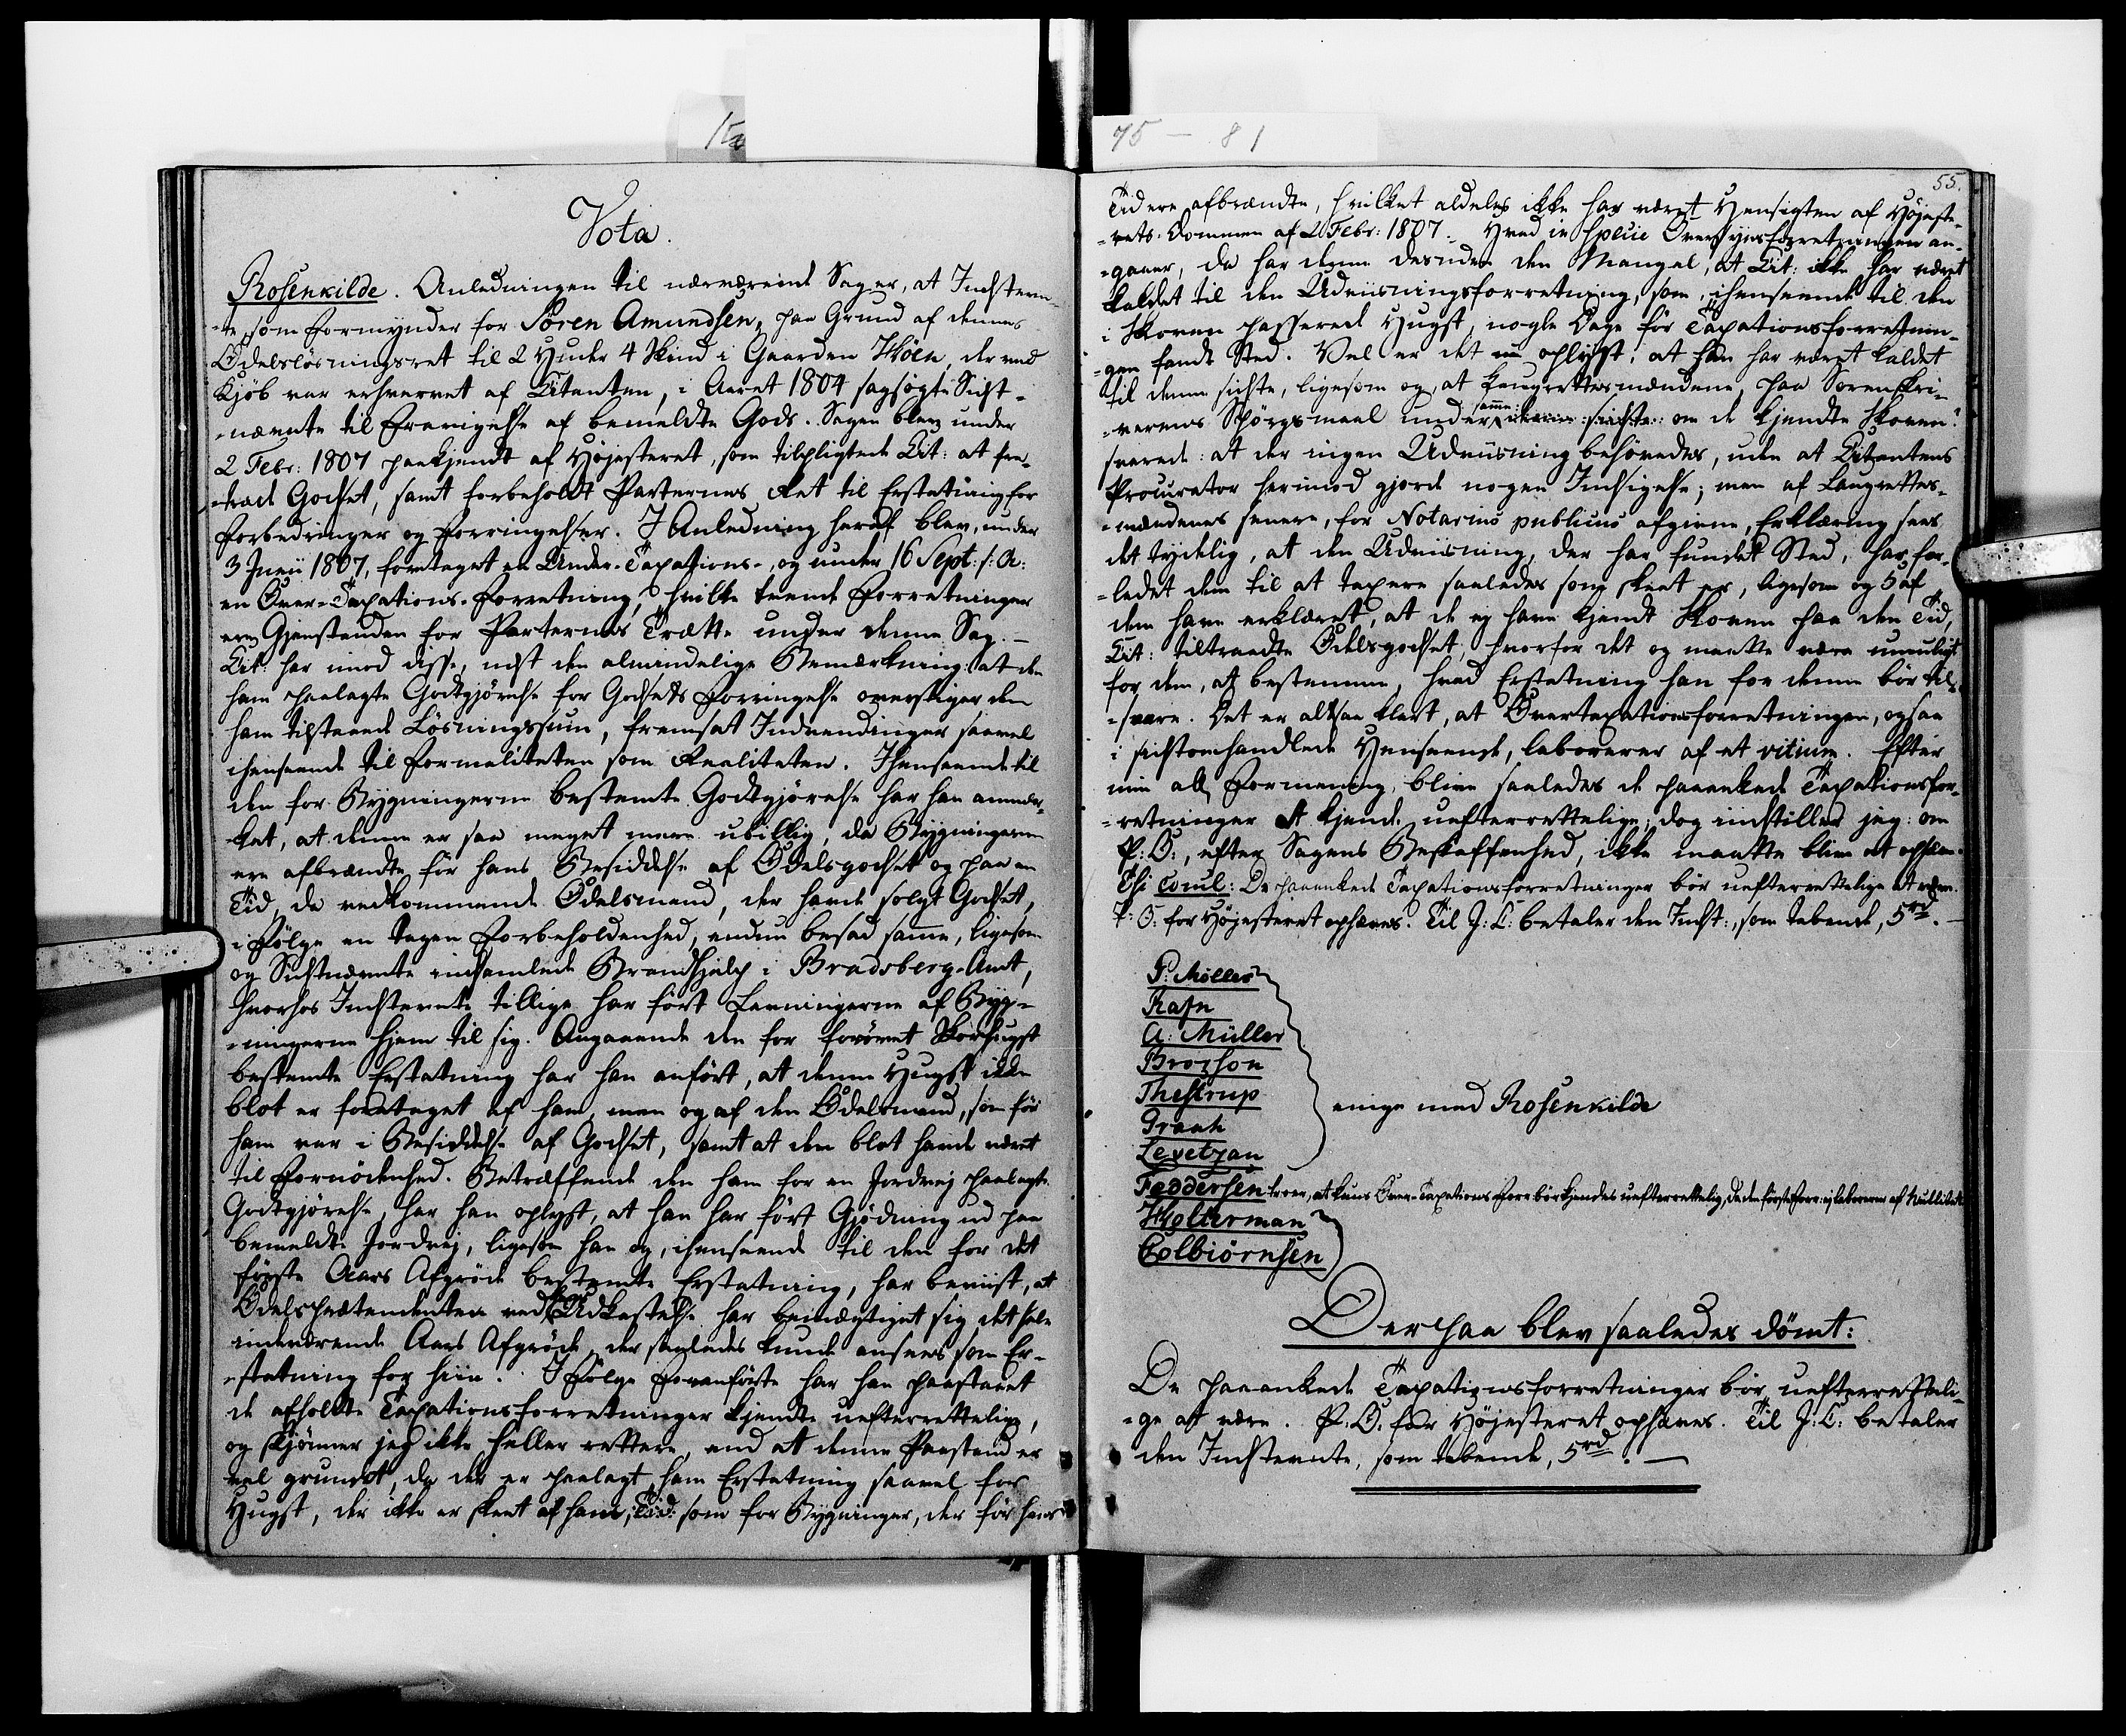 75 - 81
Vota.
Rosenkilde. Anledningen til nærværende Sag er, at Indstevn-
-te, som Formynder for Sören Amundsen, paa Grund af dennes
Odelslösningsret til 2 Huder 4 Skind i Gaarden Höen, der ved
Kjöb var erhvervet af Citanten, i Aaret 1804 sagsögte Sidst-
-nævnte til Fravigelse af bemeldte Gods. Sagen blev under
2 Febr: 1807 paakjendt af Höjesteret, som tilpligtede Cit: at fra-
-træde Godset, samt forbeholdt Parternes Ret til Erstatning for
Forbedringer og Forringelser. I Anledning heraf blev, under
3 Junii 1807, foretaget en Under-Taxations-, og under 16 Sept: s: A:
en Over-Taxations-Forretning, hvilke tvende Forretninger
ere Gjenstanden for Parternes Trætte under denne Sag. —
Cit: har imod disse, næst den almindelige Bemærkning: at den
ham paalagte Godtgjörelse for Godsets Forringelse overstiger den
ham tilstaaede Lösningssum, fremsat Indvendinger saavel
ihenseende til Formaliteten som Realiteten. Ihenseende til
den for Bygningerne bestemte Godtgjörelse har han anmær-
-ket, at denne er saa meget mere ubillig, da Bygningerne
ere afbrændte för hans Besiddelse af Odelsgodset og paa en
Tid, da vedkommende Odelsmand, der havde solgt Godset,
i Fölge en tagen Forbeholdenhed, endnu besad samme, ligesom
og Sidstnævnte indsamlede Brandhjelp i Bradsberg-Amt,
hvorhos Indstevnte tillige har fört Levningerne af Byg-
-ningerne hjem til sig. Angaaende den for forövet Skovhugst
bestemte Erstatning har han anfört, at denne Hugst ikke
blot er foretaget af ham, men og af den Odelsmand, som för
ham var i Besiddelse af Godset, samt at den blot havde været
til Fornödenhed. Betræffende den ham for en Jordvej paalagte
Godtgjörelse, har han oplyst, at han har fört Gjödning ud paa
bemeldte Jordvej, ligesom han og, ihenseende til den for det
förste Aars Afgröde bestemte Erstatning, har beviist, at
Odelsprætendenten ved Udkastelse har bemægtiget sig det hele
indeværende Aars Afgröde, der saaledes kunde ansees som Er-
-statning for hiin. I Fölge Foranförte har han paastaaet
de afholdte Taxationsforretninger kjendte uefterrettelige,
og skjönner jeg ikke heller rettere, end at denne Paastand er
vel grundet, da der er paalagt ham Erstatning saavel for
Hugst, der ikke er skeet af ham, som for Bygninger, der för hans
55.
Tid ere afbrændte, hvilket aldeles ikke har været Hensigten af Höjeste-
-rets-Dommen af 2 Febr: 1807. Hvad in specie Oversynsforretningen an-
-gaaer, da har denne desuden den Mangel, at Cit: ikke har været
kaldet til den Udviisningsforretning, som, ihenseende til den
i Skoven passerede Hugst, nogle Dage för Taxationsforretnin-
-gen fandt Sted. Vel er det oplyst, at han har været kaldet
til denne sidste, ligesom og, at Laugrettesmændene, paa Sorenskri-
-verens Spörgsmaal under samme: om de kjendte Skoven?
svarede: at der ingen Udviisning behövedes, uden at Citantens
Procurator herimod gjorde nogen Indsigelse; men af Laugrettes-
-mændenes senere, for Notarius publicus afgivne, Erklæring sees
det tydelig, at den Udviisning, der har fundet Sted, har for-
-ledet dem til at taxere saaledes som skeet er, ligesom og 5 af
dem have erklæret, at de ej have kjendt Skoven paa den Tid,
Cit: tiltraadte Odelsgodset, hvorfor det og maatte være umuligt
for dem, at bestemme, hvad Erstatning han for denne bör til-
-svare. Det er altsaa klart, at Overtaxationsforretningen, ogsaa
i sidstomhandlede Henseende, laborerer af et vitium. Efter
min Formening, blive saaledes de paaankede Taxationsfor-
-retninger at kjende uefterrettelige; dog indstiller jeg: om
P: O:, efter Sagens Beskaffenhed, ikke maatte blive at ophæve.
Thi concl: De paaankede Taxationsforretninger bör uefterrettelige at være.
P: O: for Höjesteret ophæves. Til J: C: betaler den Indst:, som tabende, 5 rd. —
P: Möller
Rafn
A: Müller
Brorson
Thestrup
Graah
Levetzau
einge med Rosenkilde
Feddersen troer, at kuns Over-Taxations Forr bör kjendes uefterrettelig, da den förste Forr: ej laborerer af Nullitet
Holterman
Colbiörnsen
Derpaa blev saaledes dömt:
De paaankede Taxationsforretninger bör uefterretteli-
-ge at være. P: O: for Höjesteret ophæves. Til J: C: betaler
den Indstevnte, som tabende, 5 rd. —